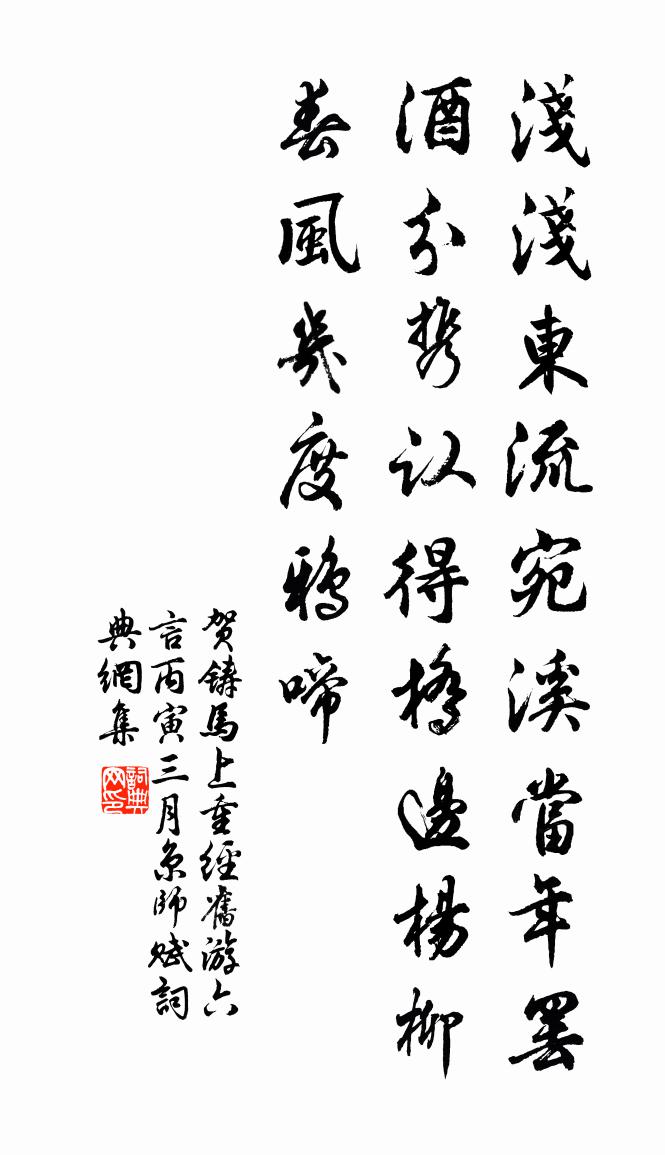 淺淺東流宛溪當年罢
酒分携认得橋邊楊柳
春風幾度鴉啼
贺鑄馬上重經舊游六
言丙寅三月京師赋詞
典網集
詞典網印